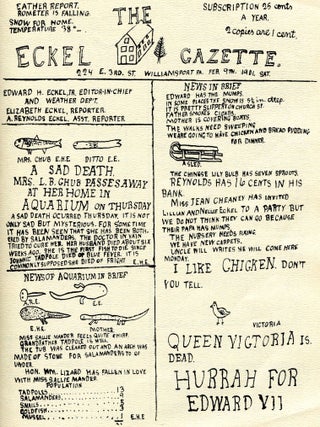 EATHER REPORT.
ROMETER IS FALLING.
SNOW FOR HOME.
TEMPERATURE 38°
THE
SUBSCRIPTION 25 CENTS
A YEAR.
2 COPIES ARE 1 CENT.
ECKEL
GAZETTE.
224 E. 3RD. ST. WILLIAMSPORT PA. FEB 9TH. 1901. SAT.
EDWARD H. ECKEL, JR. EDITOR-IN-CHIEF
AND WEATHER DEPT.
ELIZABETH ECKEL, REPORTER.
A. REYNOLDS ECKEL, ASST. REPORTER
MRS. CHUB E.H.E. DITTO L.E.
A SAD DEATH.
MRS. L.B. CHUB PASSES AWAY
AT HER HOME IN
AQUARIUM ON THURSDAY
A SAD DEATH OCCURED THURSDAY. IT IS NOT
ONLY SAD BUT MYSTERIOUS. FOR SOME TIME
IT HAS BEEN SEEN THAT SHE HAS BEEN BOTH-
ERED BY SALAMANDERS. THE DOCTOR IN VAIN
TRIED TO CURE HER. HER HUSBAND DIED ABOUT SIX
WEEKS AGO. SHE IS THE FIRST FISH TO DIE SINCE
JOHNNIE TADPOLE DIED OF BLUE FEVER. IT IS
COMMONLY SUPPOSED SHE DIED OF FRIGHT E.H.E.
NEWS OF AQUARIUM IN BRIEF
A.R.E. L.E.
E.H.E MOTHER
MISS SALLIE MANDER FEELS QUITE CHIEF.
GRANDFATHER TADPOLE IS WELL.
THE TUB WAS CLEANED OUT AND AN ARCH WAS
MADE OF STONE FOR SALAMANDERS TO GO
UNDER.
HON. WM. LIZARD HAS FALLEN IN LOVE
WITH MISS SALLIE MANDER
POPULATION
TADPOLES 13
SALAMANDERS 9
SNAILS 5
GOLDFISH 3
MUSSEL 1 E.H.E
NEWS IN BRIEF
EDWARD HAS THE MUMPS.
IN SOME PLACES THE SNOW IS 8½ IN. DEEP.
IT IS PRETTY SLIPPERY IN CHURCH ST.
FATHER SMOKES CIGARS.
MOTHER IS COVERING BOOKS.
THE WALKS NEED SWEEPING
WE ARE GOING TO HAVE CHICKEN AND BREAD PUDDING
FOR DINNER.
A SLED.
THE CHINESE LILY BULB HAS SEVEN SPROUTS.
REYNOLDS HAS 16 CENTS IN HIS
BANK.
MISS JEAN CHEANEY HAS INVITED
LILLIAN AND NELLIE ECKEL TO A PARTY BUT
WE DO NOT THINK THEY CAN GO BECAUSE
THEIR PAPA HAS MUMPS.
THE NURSERY NEEDS FIXING
WE HAVE NEW CARPETS.
UNCLE WILL WRITES HE WILL COME HERE
MONDAY.
I LIKE CHICKEN. DON'T
YOU TELL.
VICTORIA
QUEEN VICTORIA IS
DEAD.
HURRAH FOR
EDWARD VII